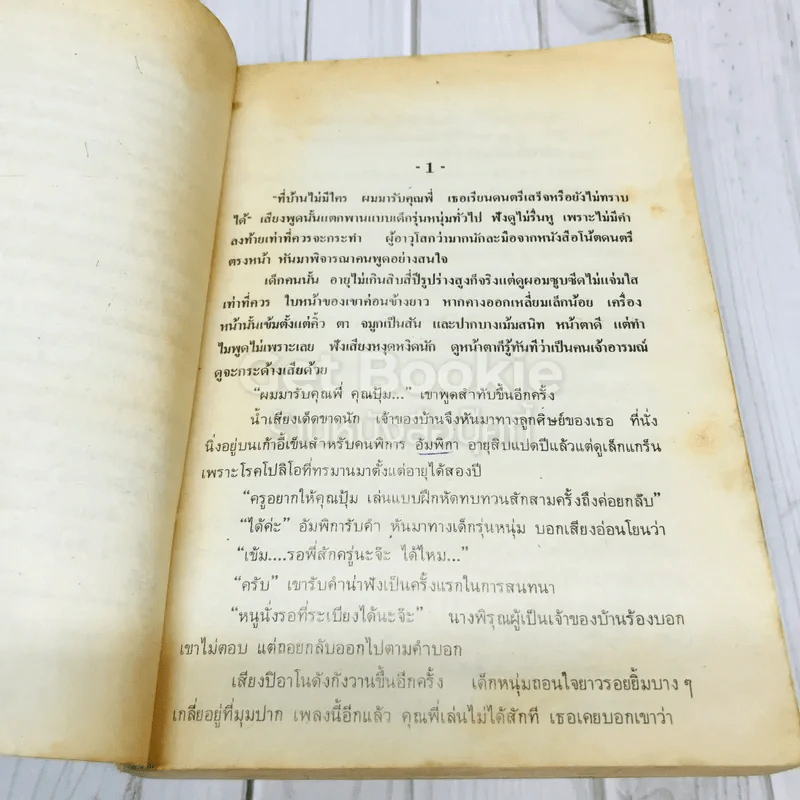 - 1 -
"ที่บ้านไม่มีใคร ผมมารับคุณพี่ เธอเรียนดนตรีเสร็จหรือยังไม่ทราบ
ได้" เสียงพูดนั้นแตกพานแบบเด็กรุ่นหนุ่มทั่วไป ฟังดูไม่รื่นหู เพราะไม่มีคำ
ลงท้ายเท่าที่ควรจะกระทำ ผู้อาวุโสกว่ามากนักละมือจากหนังสือโน้ตดนตรี
ตรงหน้า หันมาพิจารณาคนพูดอย่างสนใจ
เด็กคนนั้น อายุไม่เกินสิบสี่ปีรูปร่างสูงก็จริงแต่ดูผอมซูบซีดไม่แจ่มใส
เท่าที่ควร ใบหน้าของเขาค่อนข้างยาว หากคางออกเหลี่ยมเล็กน้อย เครื่อง
หน้านั้นเข้มตั้งแต่คิ้ว ตา จมูกเป็นสัน และปากบางเม้มสนิท หน้าตาดี แต่ทำ
ไมพูดไม่เพราะเลย ฟังเสียงหงุดหงิดนัก ดูหน้าตาก็รู้ทันทีว่าเป็นคนเจ้าอารมณ์
ดูจะกระด้างเสียด้วย
Get Bookie
"ผมมารับคุณพี่ คุณปุ้ม..." เขาพูดสำทับขึ้นอีกครั้ง
น้ำเสียงเด็ดขาดนัก เจ้าของบ้านจึงหันมาทางลูกศิษย์ของเธอ ที่นั่ง
นิ่งอยู่บนเก้าอี้เข็นสำหรับคนพิการ อัมพิกา อายุสิบแปดปีแล้วแต่ดูเล็กแกร็น
เพราะโรคโปลิโอที่ทรมานมาตั้งแต่อายุได้สองปี
"ครูอยากให้คุณปุ้ม เล่นแบบฝึกหัดทบทวนสักสามครั้งถึงค่อยกลับ"
"ได้ค่ะ" อัมพิการับคำ หันมาทางเด็กรุ่นหนุ่ม บอกเสียงอ่อนโยนว่า
"เข้ม....รอพี่สักครู่นะจ๊ะ ได้ไหม..."
"ครับ" เขารับคำน่าฟังเป็นครั้งแรกในการสนทนา
"หนูนั่งรอที่ระเบียงได้นะจ๊ะ" นางพิรุณผู้เป็นเจ้าของบ้านร้องบอก
เขาไม่ตอบ แต่ถอยกลับออกไปตามคำบอก
เสียงปิอาโนดังกังวานขึ้นอีกครั้ง เด็กหนุ่มถอนใจยาวรอยยิ้มบาง ๆ
เกลี่ยอยู่ที่มุมปาก เพลงนี้อีกแล้ว คุณพี่เล่นไม่ได้สักที เธอเคยบอกเขาว่า